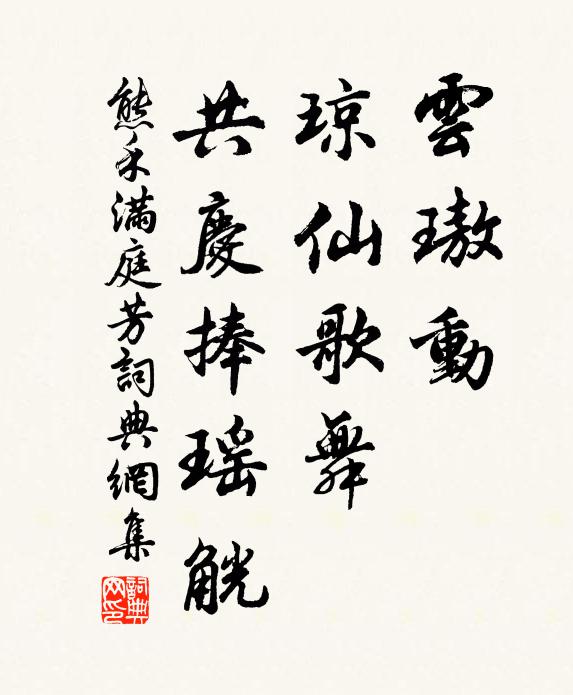 雲璈動
琼仙歌舞
共慶捧瑶觥
熊禾滿庭芳詞典網集
詞典網印